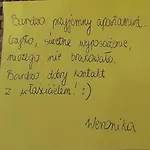 Bardzo przyjemny apartament.
Czysto, świetne wyposażenie,
niczego nie brakowało.
Bardzo dobry kontakt
z właścicielem! :)
Weronika